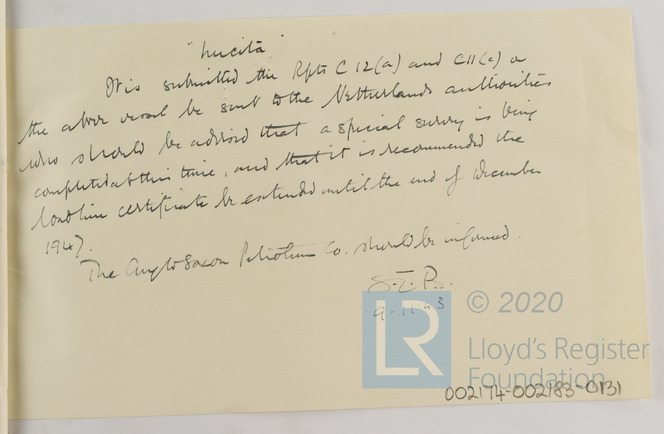 "Lucita"
It is submitted the Rpts C 12(a) and C11(c) on
the above vessel be sent to the Netherlands authorities
who should be advised that a special survey is being
completed at this time, and that it is recommended the
loadline certificate be extended until the end of December
1947.
The Anglo Saxon Petroleum Co. should be informed.
9-11-43
© 2020
LR
Lloyd's Register
Foundation
002174-002183-0131